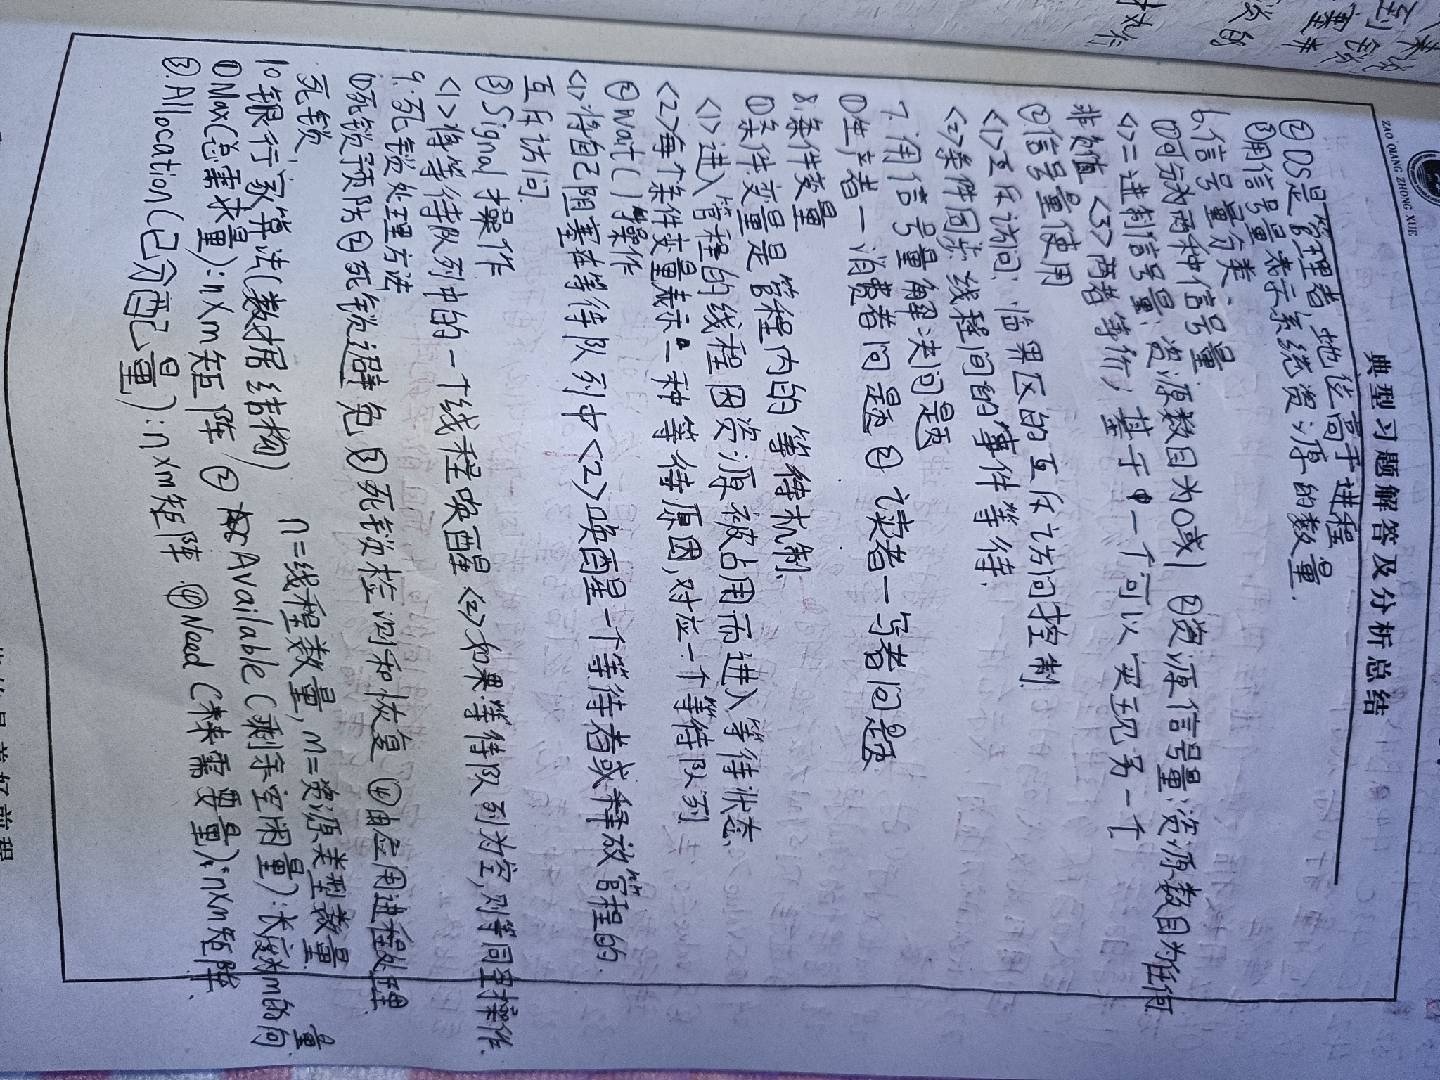 ZAO QIANG ZHONG XUE
典型习题解答及分析总结
②OS是管理者,地位高于进程
③用信号量表示系统资源的数量.
6.信号量分类.
①可分为两种信号量.
<1>二进制信号量:资源数目为0或1 ②资源信号量:资源数目为任何
非负值 <3>两者等价;基于一个可以实现另一个
②信号量使用
<1>互斥访问:临界区的互斥访问控制.
<2>条件同步.线程间的事件等待.
7.用信号量解决问题
①生产者—消费者问题② 读者—写者问题
8.条件变量
①条件变量是管程内的等待机制.
<1>进入管程的线程因资源被占用而进入等待状态.
<2>每个条件变量表示一种等待原因,对应一个等待队列
②wait()操作
<1>将自己阻塞在等待队列中<2>唤醒一个等待者或释放管程的.
互斥访问.
③Signal操作
<1>将等待队列中的一个线程唤醒<2>如果等待队列为空,则等同空操作.
9.死锁处理方法
①死锁预防②死锁避免③死锁检测和恢复 ④由应用进程处理
死锁.
n=线程数量,m=资源类型数量.
10银行家算法(数据结构)
①Max(总需求量):n×m矩阵 ②Available(剩余空闲量):长度为m的向
量
③.Allocation(已分配量):n×m矩阵.④Need(未来需要量):n×m矩阵.
到锁
塞并
的
执行
美好前程